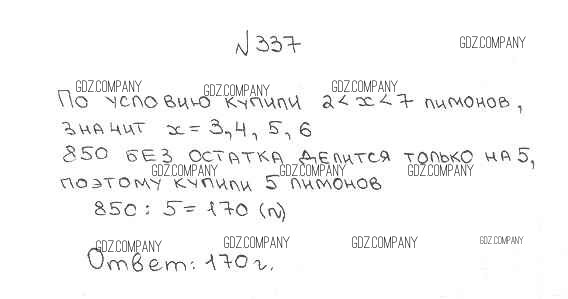 №337
GDZ.COMPANY
GDZ.COMPANY GDZ.COMPANY GDZ.COMPANY
По условию купили 2 < x < 7 лимонов,
значит x = 3, 4, 5, 6
850 без остатка делится только на 5,
GDZ.COMPANY GDZ.COMPANY GDZ.COMPANY
поэтому купили 5 лимонов
850 : 5 = 170 (л)
GDZ.COMPANY GDZ.COMPANY GDZ.COMPANY GDZ.COMPANY
Ответ: 170 г.